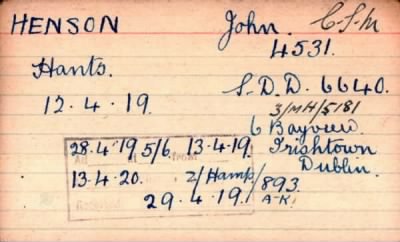 HENSON John. C.S.M
4531.
Hants. S.D.D. 6640.
12.4.19. 3/MH/5181
6 Bayview.
28.4.19 5/6 13.4.19. Irishtown
Dublin.
13.4.20. 2/Hamp/893
29.4.19. A-K.